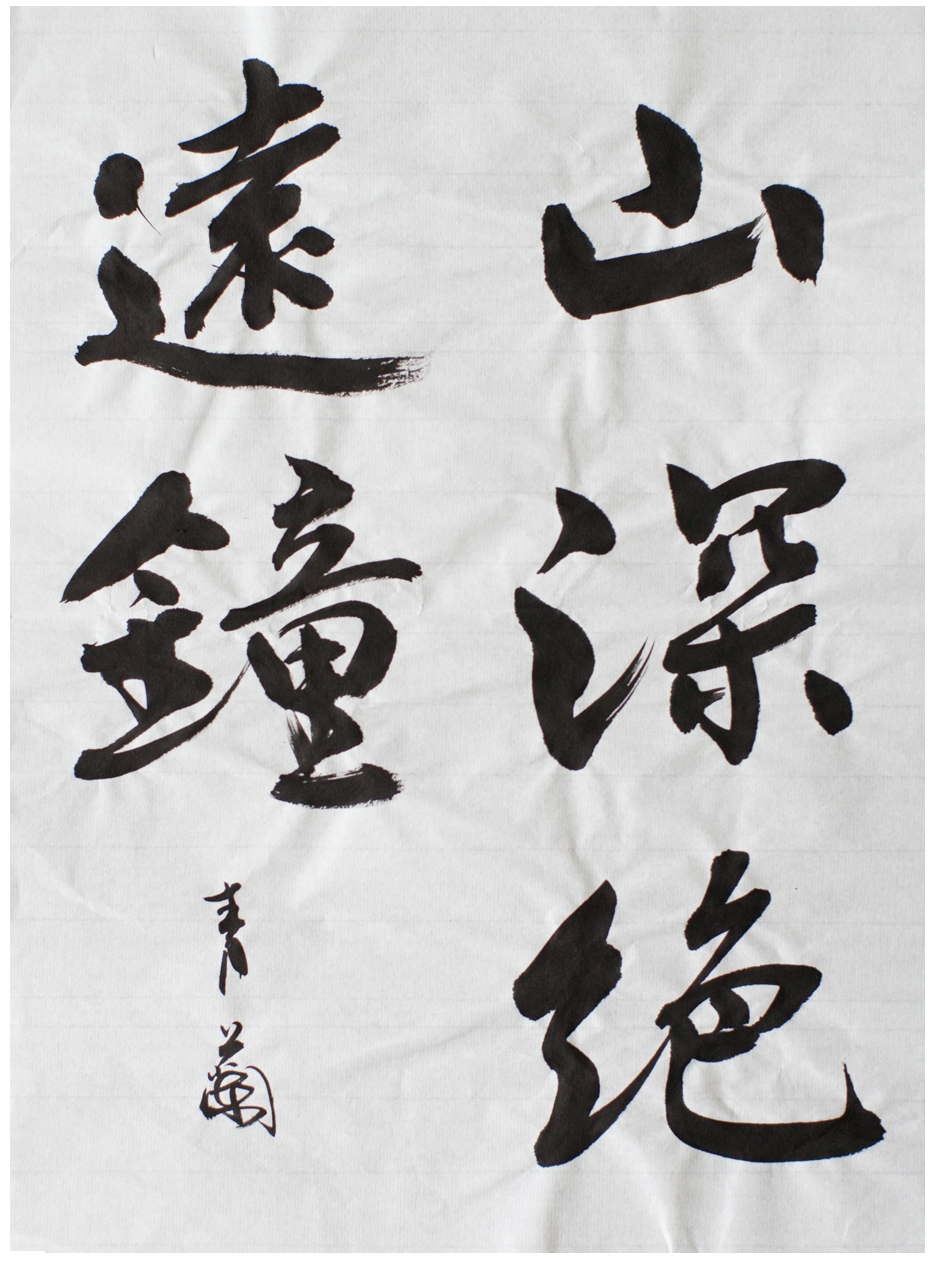 山深絶
遠鐘
青蘭